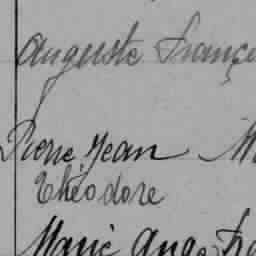 Auguste Franço
Pierre Jean M
Théodore
Marie Ange Fra